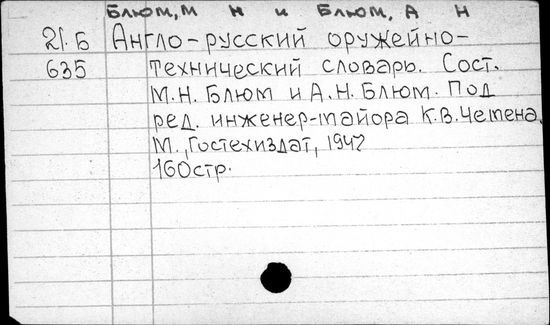 Блюм, М Н и Блюм, А Н
21.Б Англо-русский оружейно-
635 технический словарь. Сост.
М.Н. Блюм и А.Н. Блюм. Под
ред. инженер-майора К.В. Чемена.
М., Гостехиздат, 1947
160стр.